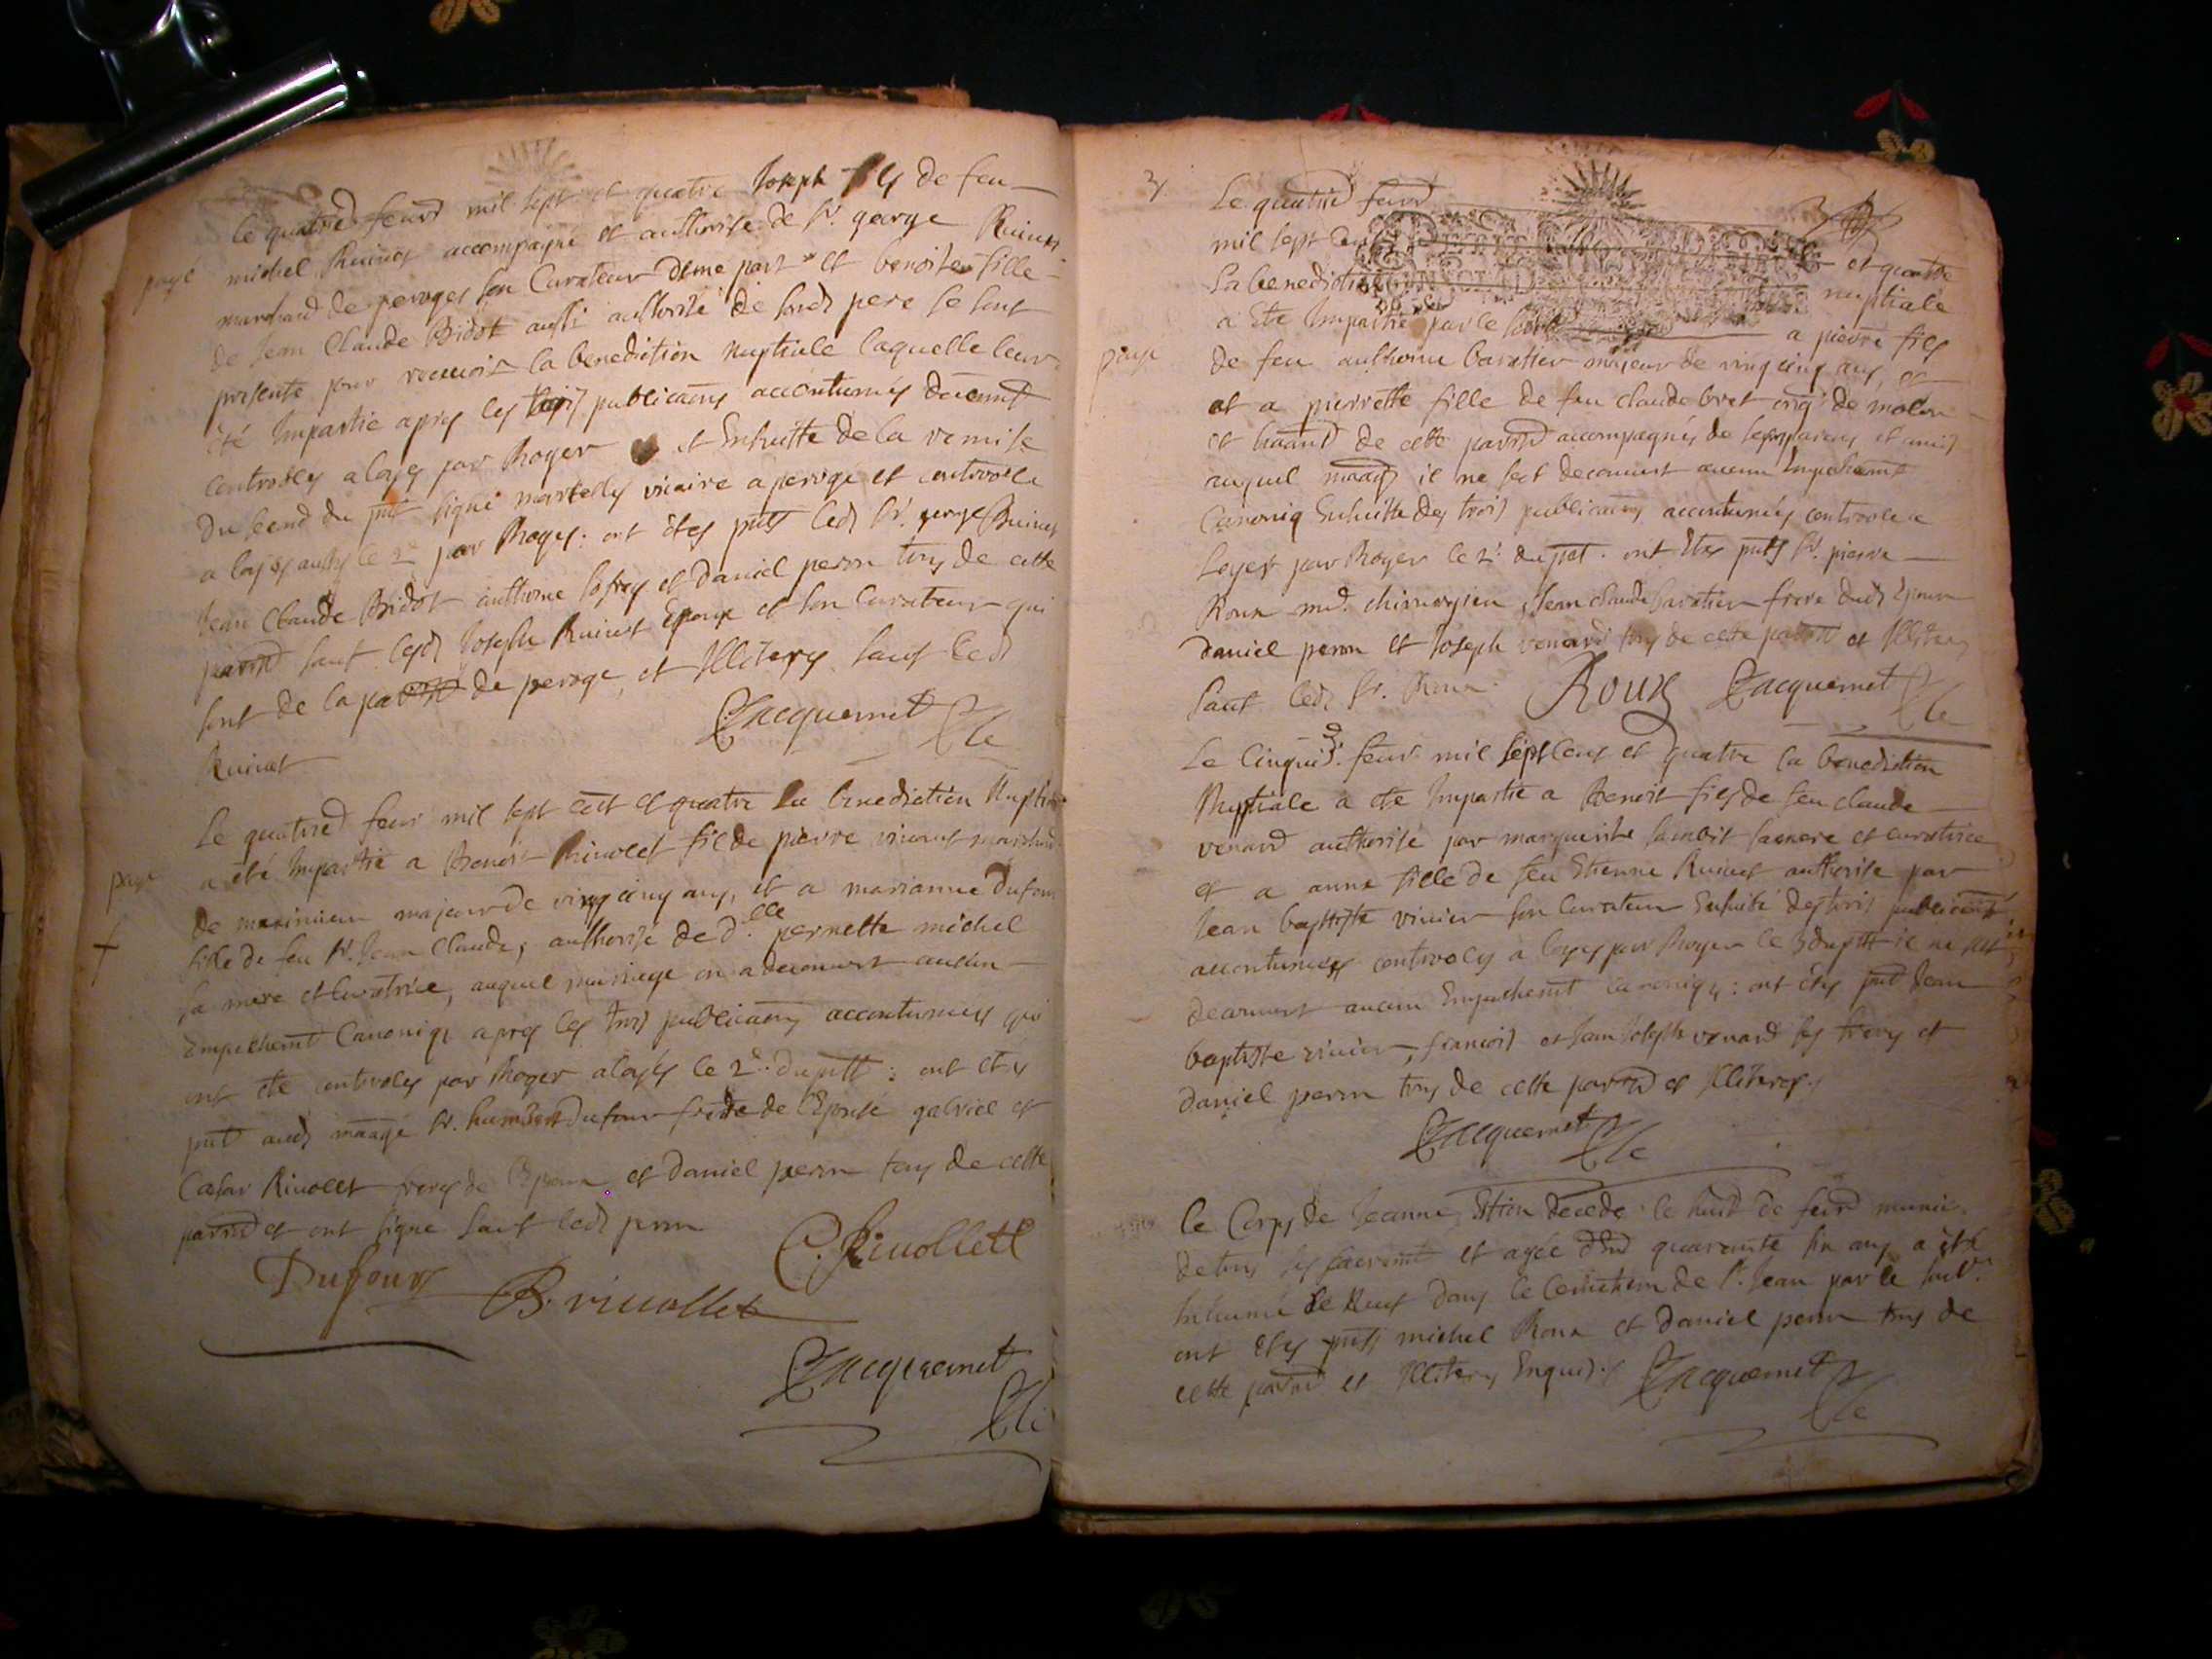 Le quatred feurd mil sept et quatre Joseph fils de feu
payé
michel Ruinet accompagné et authorise de Sr. george Ruinet
marchand de peroges son Curateur dune part et benoite fille
de Jean Claude Bidot aussi authorisé de sond pere se sont
presenté pour recevoir la benediction nuptiale laquelle leur
été Impartie apres les trois publicaons accoutumés
controles a loyes par Roger et Ensuitte de la remise
du second du pnt signé vicaire a peroge et controole
a loyes aussy le 2e par Roger: ont étés pnts led Sr. george Ruinet
Jean Claude Bidot anthoine et Daniel peron tous de cette
parrd sauf lesd Joseph Ruinet Epoux et son Curateur qui
sont de la parrd de peroge, et Illiteres sauf led
Ruinet
Jacquemet
Le quatred feur mil sept cent et quatre La benediction Nuptiale
paye
a été Impartie a Benoit Rivolet fils de pierre vivant marchand
de meximieu majeur de ving cinq ans, et a marianne Dufour
fille de feu Sr. Jean Claude, authorisé de d.elle pernette michel
sa mere et Curatrice, auquel mariage on a decouvert aucun
Empechemt Canoniq apres les trois publicaons accoutumées qui
ont été controles par Roger a loyes le 2e du pntt: ont étés
pnt aud maage Sr. humbert Dufour frere de l'Epouse gabriel et
Cesar Rivolet freres de l'Epoux et Daniel peron tous de cette
parrd et ont signé sauf led peron
Dufour
B. rivollet
C. Rivollett
Jacquemet
3
Le quatred feurd
mil sept cent et quatre
La benediction nuptiale
a été Impartie par le a pierre fils
paye
de feu anthoine baratier majeur de ving cinq ans, et
et a pierrette fille de feu claude bret orig. de
et de cette parrd accompagnés de leurs parens et amis
auquel maage il ne sest decouvert aucun Empechemt
Canoniq Ensuitte des trois publicaons accoutumées controole a
Loyes par Roger le 2e du pnt. ont étés pnts Sr. pierre
Roux md. chirurgien, Jean claude baratier frere dud Epoux
Daniel peron et Joseph venard tous de cette parrd et Illiteres
Sauf led Sr. Roux
Roux
Jacquemet
Le Cinquie. feur. mil sept cent et quatre la benediction
Nuptiale a été Impartie a Benoit fils de feu claude
venard authorisé par marguerite sa mere et curatrice
et a anne fille de feu Etienne Ruinet authorise par
Jean baptiste vivier son Curateur Ensuitte des trois publicaons
accoutumées controles a loyes par Roger le 3 du pntt il ne sest
decouvert aucun Empechemt Canoniq: ont étés pnt Jean
baptiste vivier, francois et Jean Joseph venard ses freres et
Daniel peron tous de cette parrd et Illiteres
Jacquemet
Le Corps de Jeanne decede le huid de feurd munie
de tous ses sacremt et agée denvd quarante six ans a été
Inhumé le Neuf dans le Cemetiere de St. Jean par le souss.
ont étés pnts michel Roux et Daniel peron tous de
cette parrd et Illiteres Enquis
Jacquemet